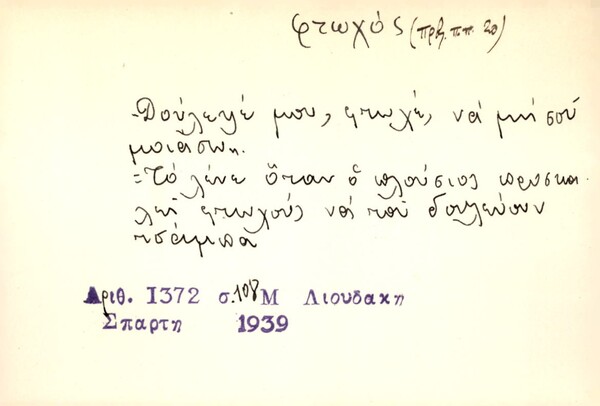 φτωχός (πρβ. ππ. 20)
-Δούλεψέ μου, φτωχέ, νά μή σού
μοιάσω.
=Τό λένε ὅταν ὁ πλούσιος προσκα-
λεῖ φτωχούς νά τοῦ δουλεύουν
τσάμπα
Αριθ. 1372 σ.108 Μ Λιουδακη
Σπαρτη 1939